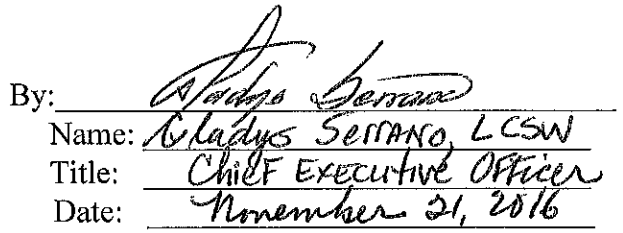 By: Gladys Serrano
Name: Gladys Serrano, LCSW
Title: Chief Executive Officer
Date: November 21, 2016